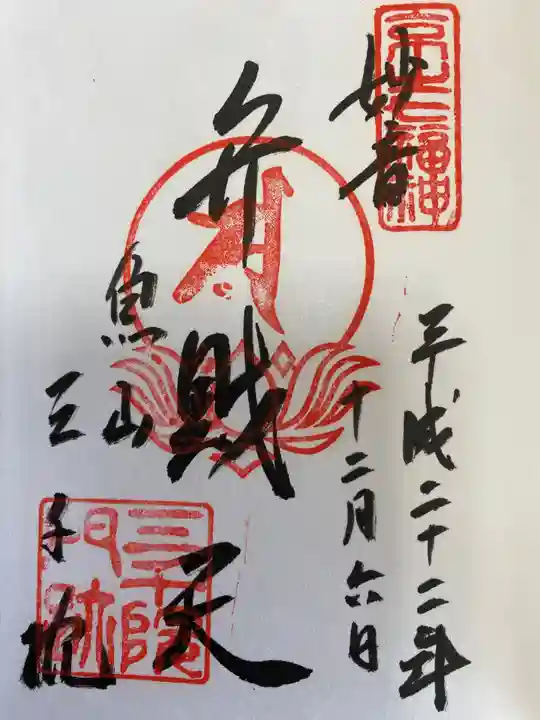 京之七福神
平成二十二年
十二月六日
妙音
弁財天
魚山
三千院
三千院
門跡